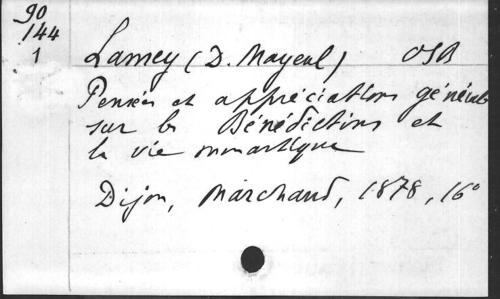 90
144
1
Lamey (D. Mayeul) OSB
Pensées et appréciations générales
sur les Bénédictins et
la vie monastique
Dijon, Marchand, 1878, 16°